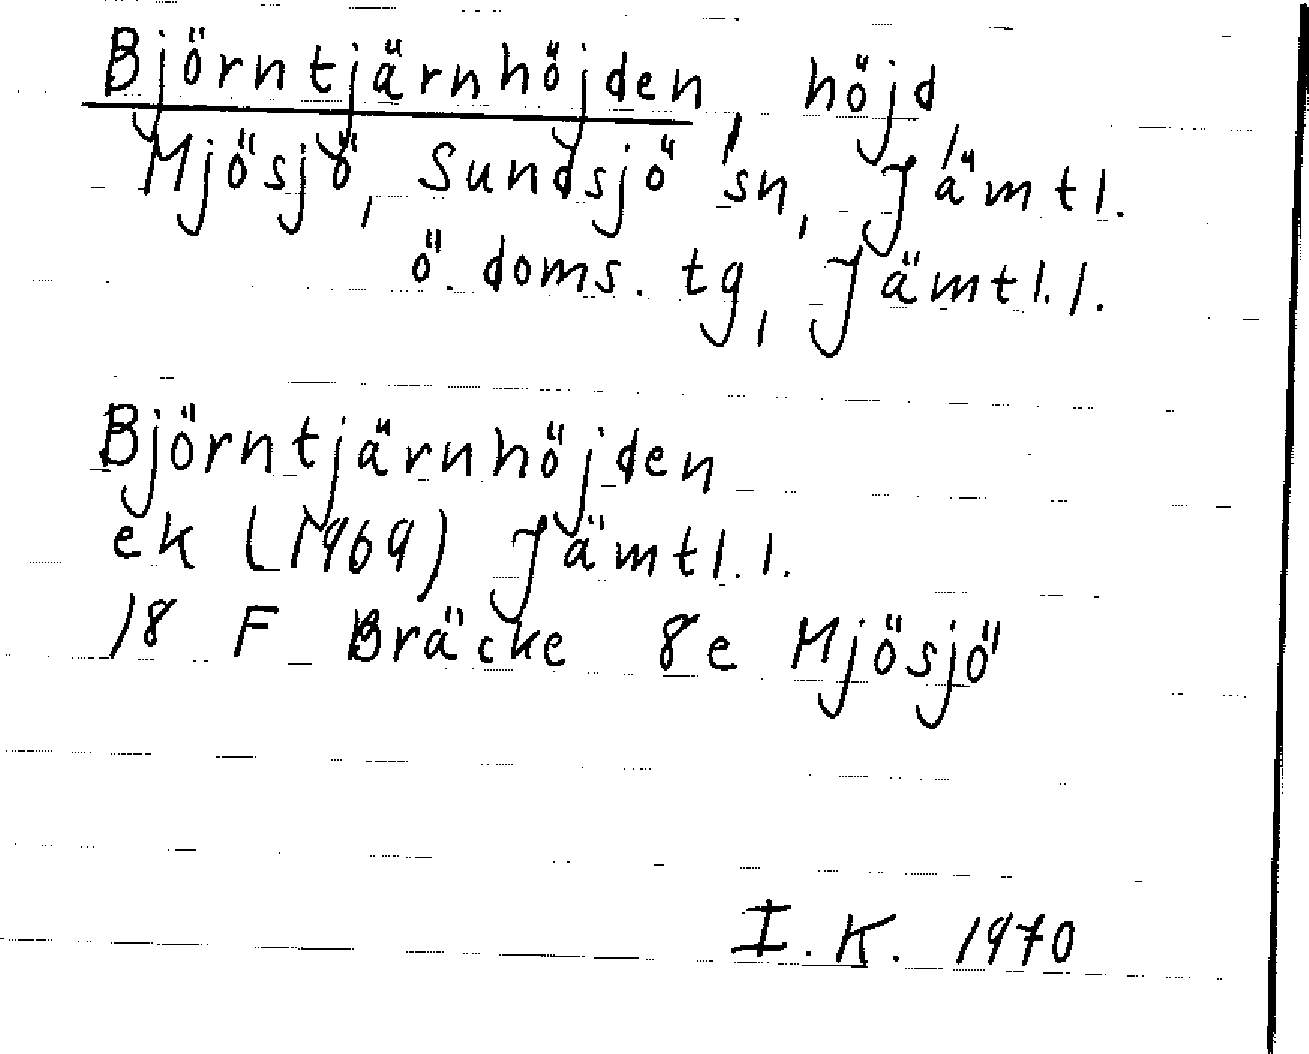 Björntjärnhöjden, höjd,
Mjösjö, Sundsjö sn, Jämtl.
ö. doms. tg, Jämtl. l.
Björntjärnhöjden
ek (1969) Jämtl. l.
18 F Bräcke 8e Mjösjö
I. K. 1970